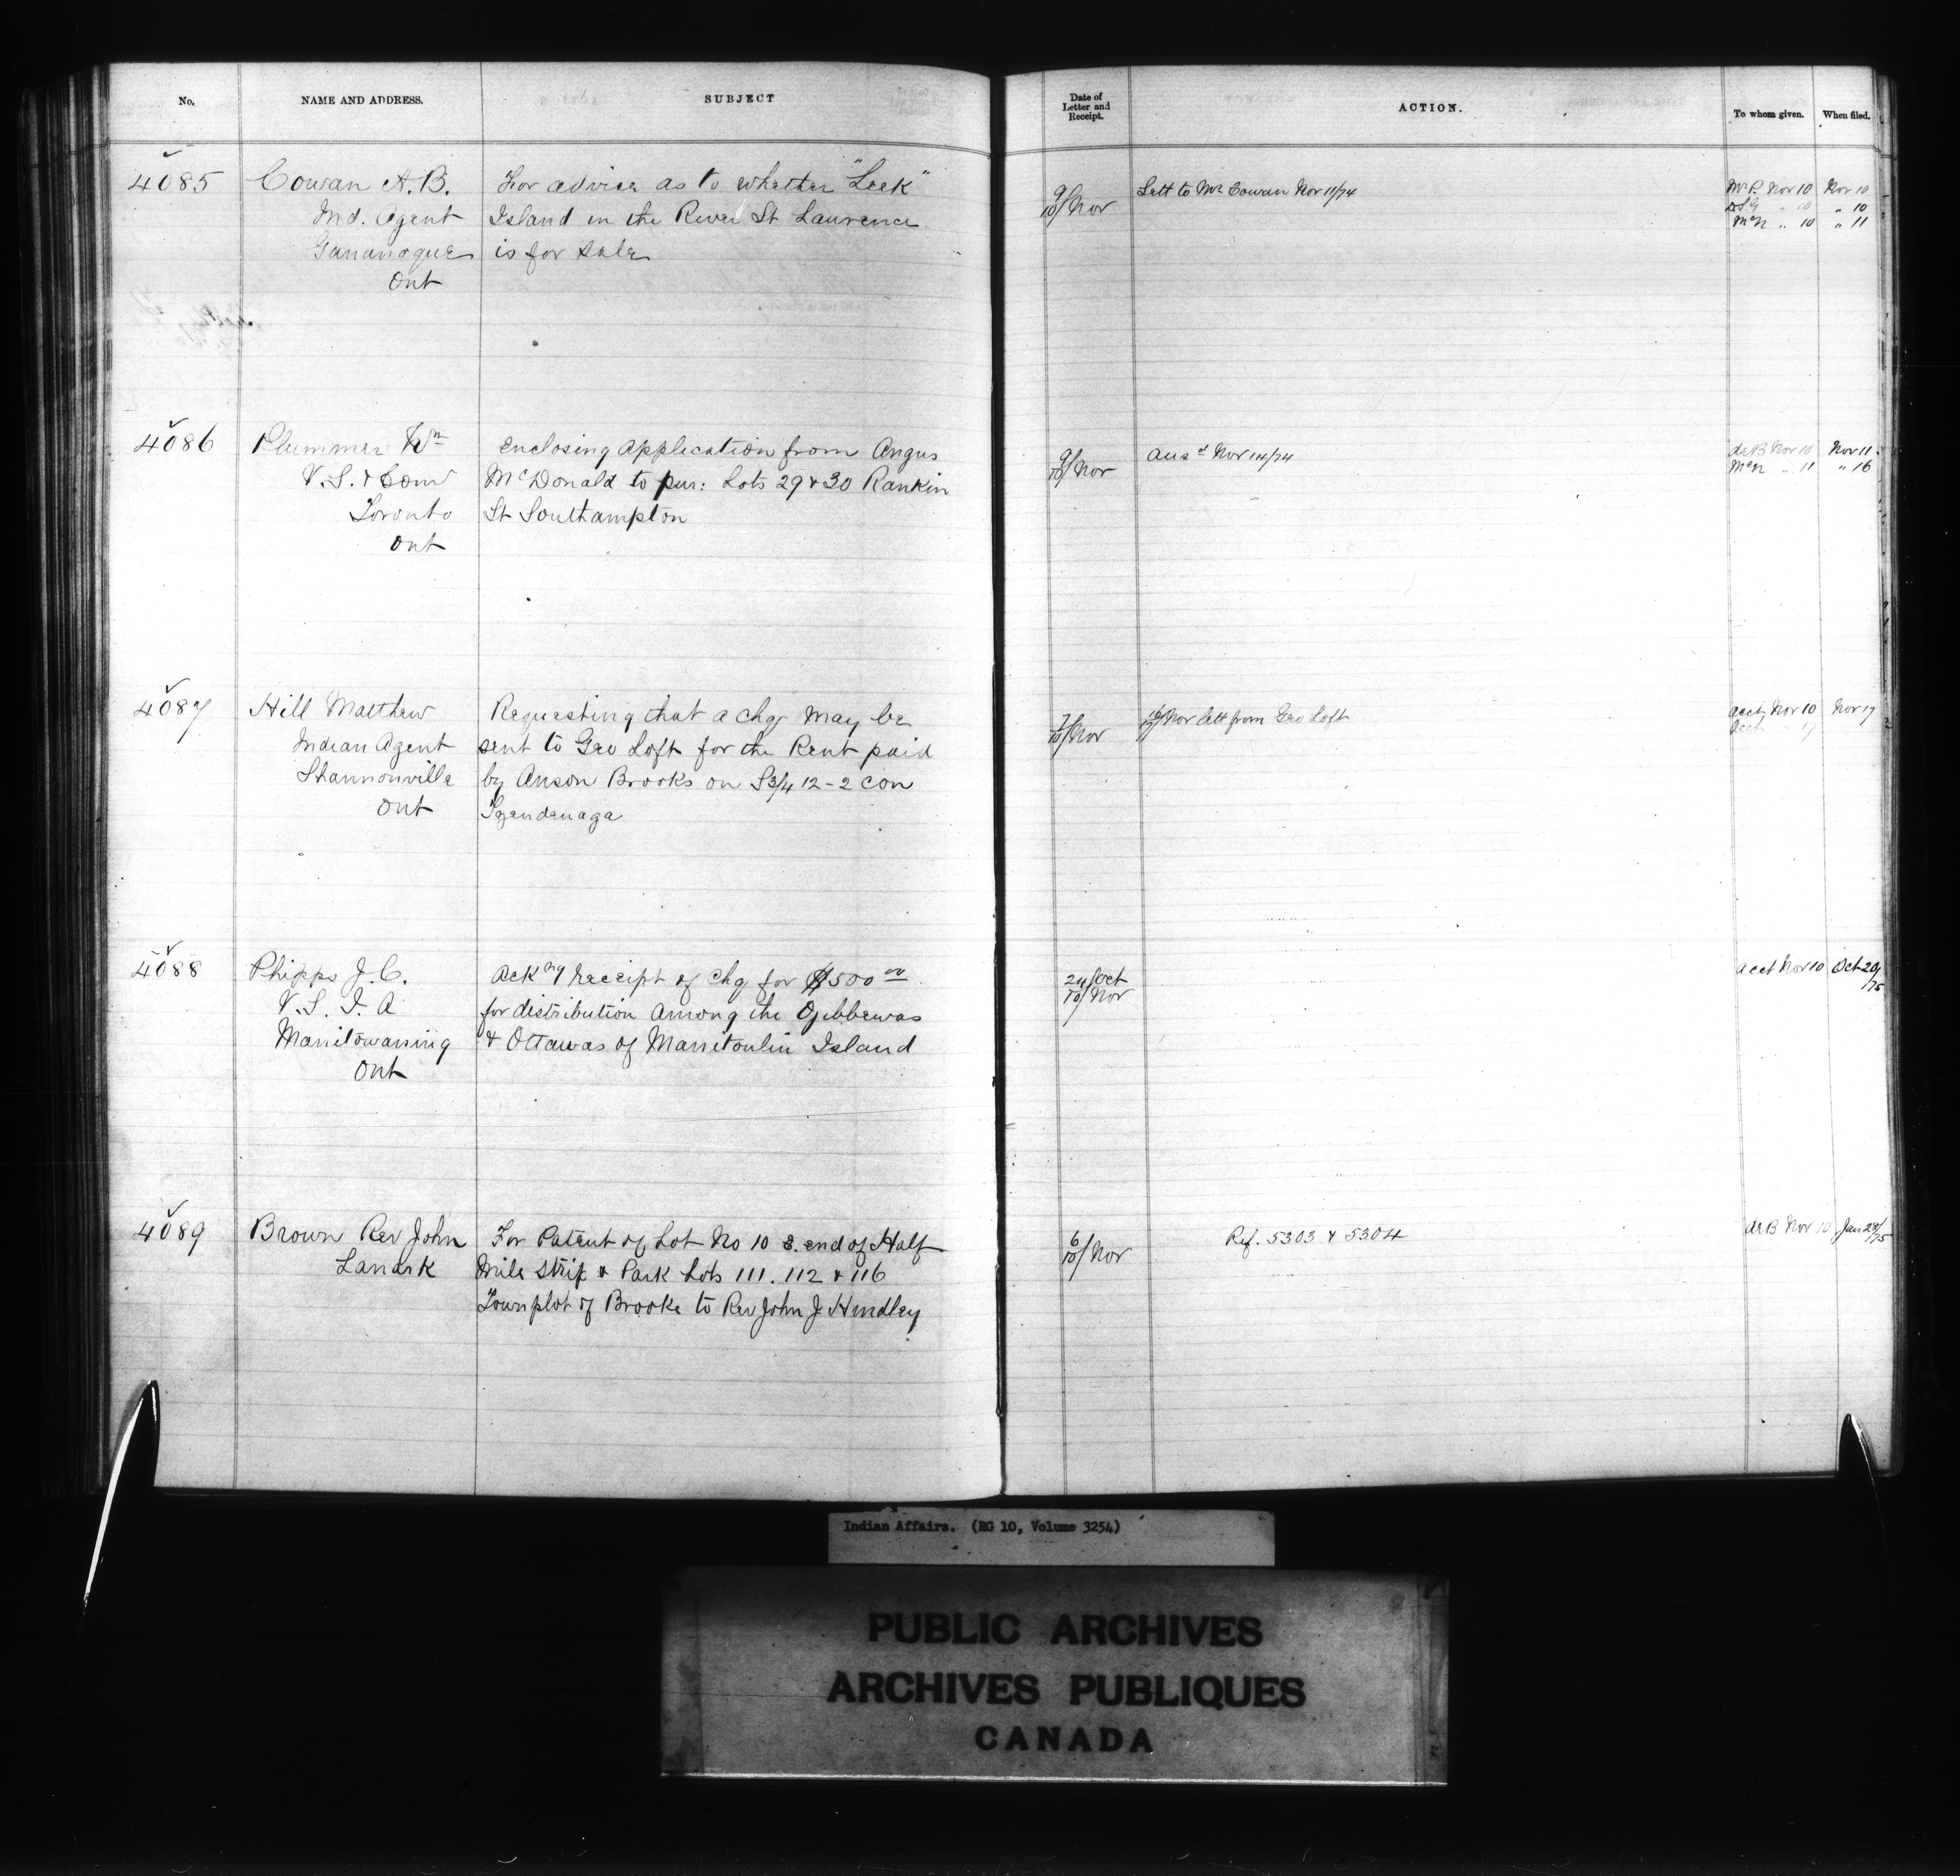 No.
NAME AND ADDRESS.
SUBJECT
Date of
Letter and
Receipt.
ACTION.
To whom given.
When filed.
4085
Cowan A. B.
Ind. Agent
Gananoque
Ont
For advice as to whether "Leek"
Island in the River St Laurence
is for sale
9/10/Nov
Lett to Mr Cowan Nov 11/74
McP. Nov 10 Nov 10
" 10 " 10
McN " 10 " 11
4086
Plummer Wm
V. S. & Com
Toronto
Ont
Enclosing application from Angus
McDonald to pur: Lots 29 & 30 Rankin
St Southampton
9/10/Nov
Ansd Nov 14/74
deB Nov 10 Nov 11
McN " 11 " 16
4087
Hill Matthew
Indian Agent
Shannonville
Ont
Requesting that a chq may be
sent to Geo Loft for the Rent paid
by Anson Brooks on S 3/4 12 - 2 con
Tyendenaga
7/10/Nov
Nov lett from Geo Loft
acct Nov 10 Nov 17
Acct 17
4088
Phipps J. C.
V. S. I. A
Manitowaning
Ont
Ackng receipt of chq for $500 00
for distribution among the Ojibbewas
& Ottawas of Manitoulin Island
24/Oct
10/Nov
acct Nov 10 Oct 20/75
4089
Brown Rev John
Lanark
For Patent of Lot No 10 E. end of Half
Mile Strip & Park Lots 111. 112 & 116
Townplot of Brooke to Rev John J Hindley
6/10/Nov
Ref. 5303 & 5304
deB Nov 10 Jan 28/75
Indian Affairs. (RG 10, Volume 3254)
PUBLIC ARCHIVES
ARCHIVES PUBLIQUES
CANADA